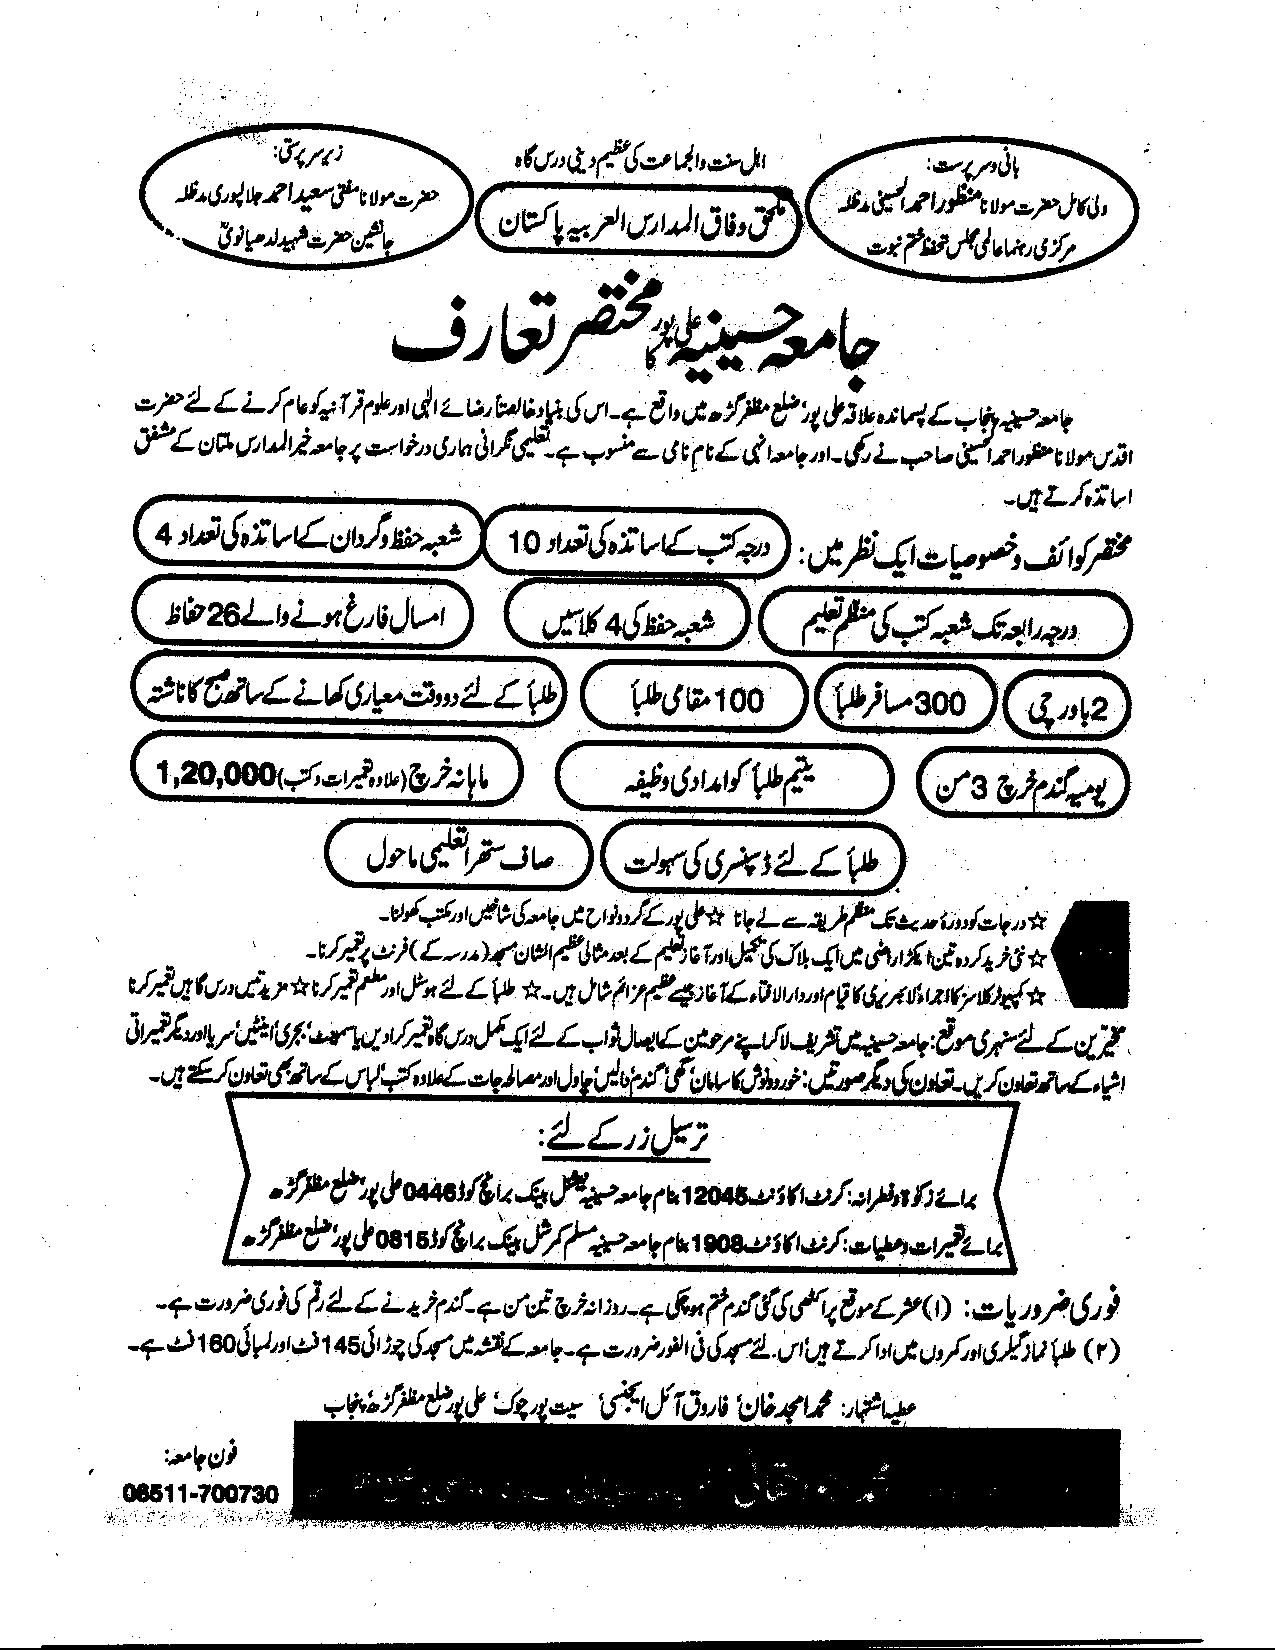 بانی و سرپرست:
ولی کامل حضرت مولانا منظور احمد الحسینی مدظلہ
مرکزی رہنما عالمی مجلس تحفظ ختم نبوت
اہل سنت والجماعت کی عظیم دینی درس گاہ
ملحق وفاق المدارس العربیہ پاکستان
زیر سرپرستی:
حضرت مولانا مفتی سعید احمد جلالپوری مدظلہ
جانشین حضرت شہید لدھیانویؒ
جامعہ حسینیہ علی پور کا مختصر تعارف
جامعہ حسینیہ پنجاب کے پسماندہ علاقہ علی پور، ضلع مظفر گڑھ میں واقع ہے۔ اس کی بنیاد خالصتاً رضائے الٰہی اور علوم قرآنیہ کو عام کرنے کے لئے حضرت
اقدس مولانا منظور احمد الحسینی صاحب نے رکھی۔ اور جامعہ انہی کے نام نامی سے منسوب ہے۔ تعلیمی نگرانی ہماری درخواست پر جامعہ خیر المدارس ملتان کے مشفق
اساتذہ کرتے ہیں۔
مختصر کوائف و خصوصیات ایک نظر میں: درجہ کتب کے اساتذہ کی تعداد 10 شعبہ حفظ و گردان کے اساتذہ کی تعداد 4
درجہ رابعہ تک شعبہ کتب کی منظم تعلیم شعبہ حفظ کی 4 کلاسیں امسال فارغ ہونے والے 26 حفاظ
2 باورچی 300 مسافر طلبأ 100 مقامی طلبأ طلبأ کے لئے دو وقت معیاری کھانے کے ساتھ صبح کا ناشتہ
یومیہ گندم خرچ 3 من یتیم طلبأ کو امدادی وظیفہ ماہانہ خرچ (علاوہ تعمیرات و کتب) 1,20,000
طلبأ کے لئے ڈسپنسری کی سہولت صاف ستھرا تعلیمی ماحول
☆ درجات کو دورۂ حدیث تک منظم طریقہ سے لے جانا ☆ علی پور کے گردونواح میں جامعہ کی شاخیں اور مکتب کھولنا۔
☆ نئی خرید کردہ تین ایکڑ اراضی میں ایک بلاک کی تکمیل اور آغاز تعلیم کے بعد مثالی عظیم الشان مسجد (مدرسہ کے) فرنٹ پر تعمیر کرنا۔
☆ کمپیوٹر کلاسز کا اجراء لائبریری کا قیام اور دارالافتاء کے آغاز جیسے عظیم عزائم شامل ہیں۔ ☆ طلبأ کے لئے ہوسٹل اور مطعم تعمیر کرنا ☆ مزید تیں درس گاہیں تعمیر کرنا
مخیرین کے لئے سنہری موقع: جامعہ حسینیہ میں تشریف لا کر اپنے مرحومین کے ایصال ثواب کے لئے ایک مکمل درس گاہ تعمیر کرادیں یا سیمنٹ، بجری، اینٹیں، سریا اور دیگر تعمیراتی
اشیاء کے ساتھ تعاون کریں۔ تعاون کی دیگر صورتیں: خورد و نوش کا سامان، گھی، گندم، دالیں، چاول اور مصالحہ جات کے علاوہ کتب، لباس کے ساتھ بھی تعاون کر سکتے ہیں۔
ترسیل زر کے لئے:
برائے زکوٰۃ و فطرانہ: کرنٹ اکاؤنٹ 12045 بنام جامعہ حسینیہ نیشنل بینک برانچ کوڈ 0446 علی پور، ضلع مظفر گڑھ
برائے تعمیرات و عطیات: کرنٹ اکاؤنٹ 1908 بنام جامعہ حسینیہ مسلم کمرشل بینک برانچ کوڈ 0815 علی پور، ضلع مظفر گڑھ
فوری ضروریات: (۱) عشر کے موقع پر اکٹھی کی گئی گندم ختم ہو چکی ہے۔ روزانہ خرچ تین من ہے۔ گندم خریدنے کے لئے رقم کی فوری ضرورت ہے۔
(۲) طلبأ نماز گیلری اور کمروں میں ادا کرتے ہیں، اس لئے مسجد کی فی الفور ضرورت ہے۔ جامعہ کے نقشہ میں مسجد کی چوڑائی 145 فٹ اور لمبائی 160 فٹ ہے۔
عطیہ اشتہار: محمد امجد خان، فاروق آئل ایجنسی، سیت پور چوک، علی پور ضلع مظفر گڑھ، پنجاب
فون جامعہ:
06511-700730